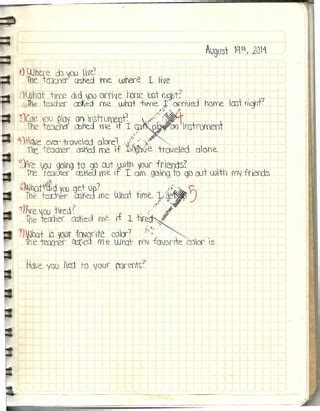 August 19th, 2014
1) Where do you live?
The teacher asked me where I live
2) What time did you arrive home last night?
The teacher asked me what time I arrived home last night?
3) Can you play an instrument?
The teacher asked me if I can play an instrument
4) Have ever traveled alone?
The teacher asked me if I have traveled alone
5) Are you going to go out with your friends?
The teacher asked me if I am going to go out with my friends
6) What time did you get up?
The teacher asked me what time I
7) Are you tired?
The teacher asked me if I tired
8) What is your favorite color?
The teacher asked me what my favorite color is
Have you lied to your parents?